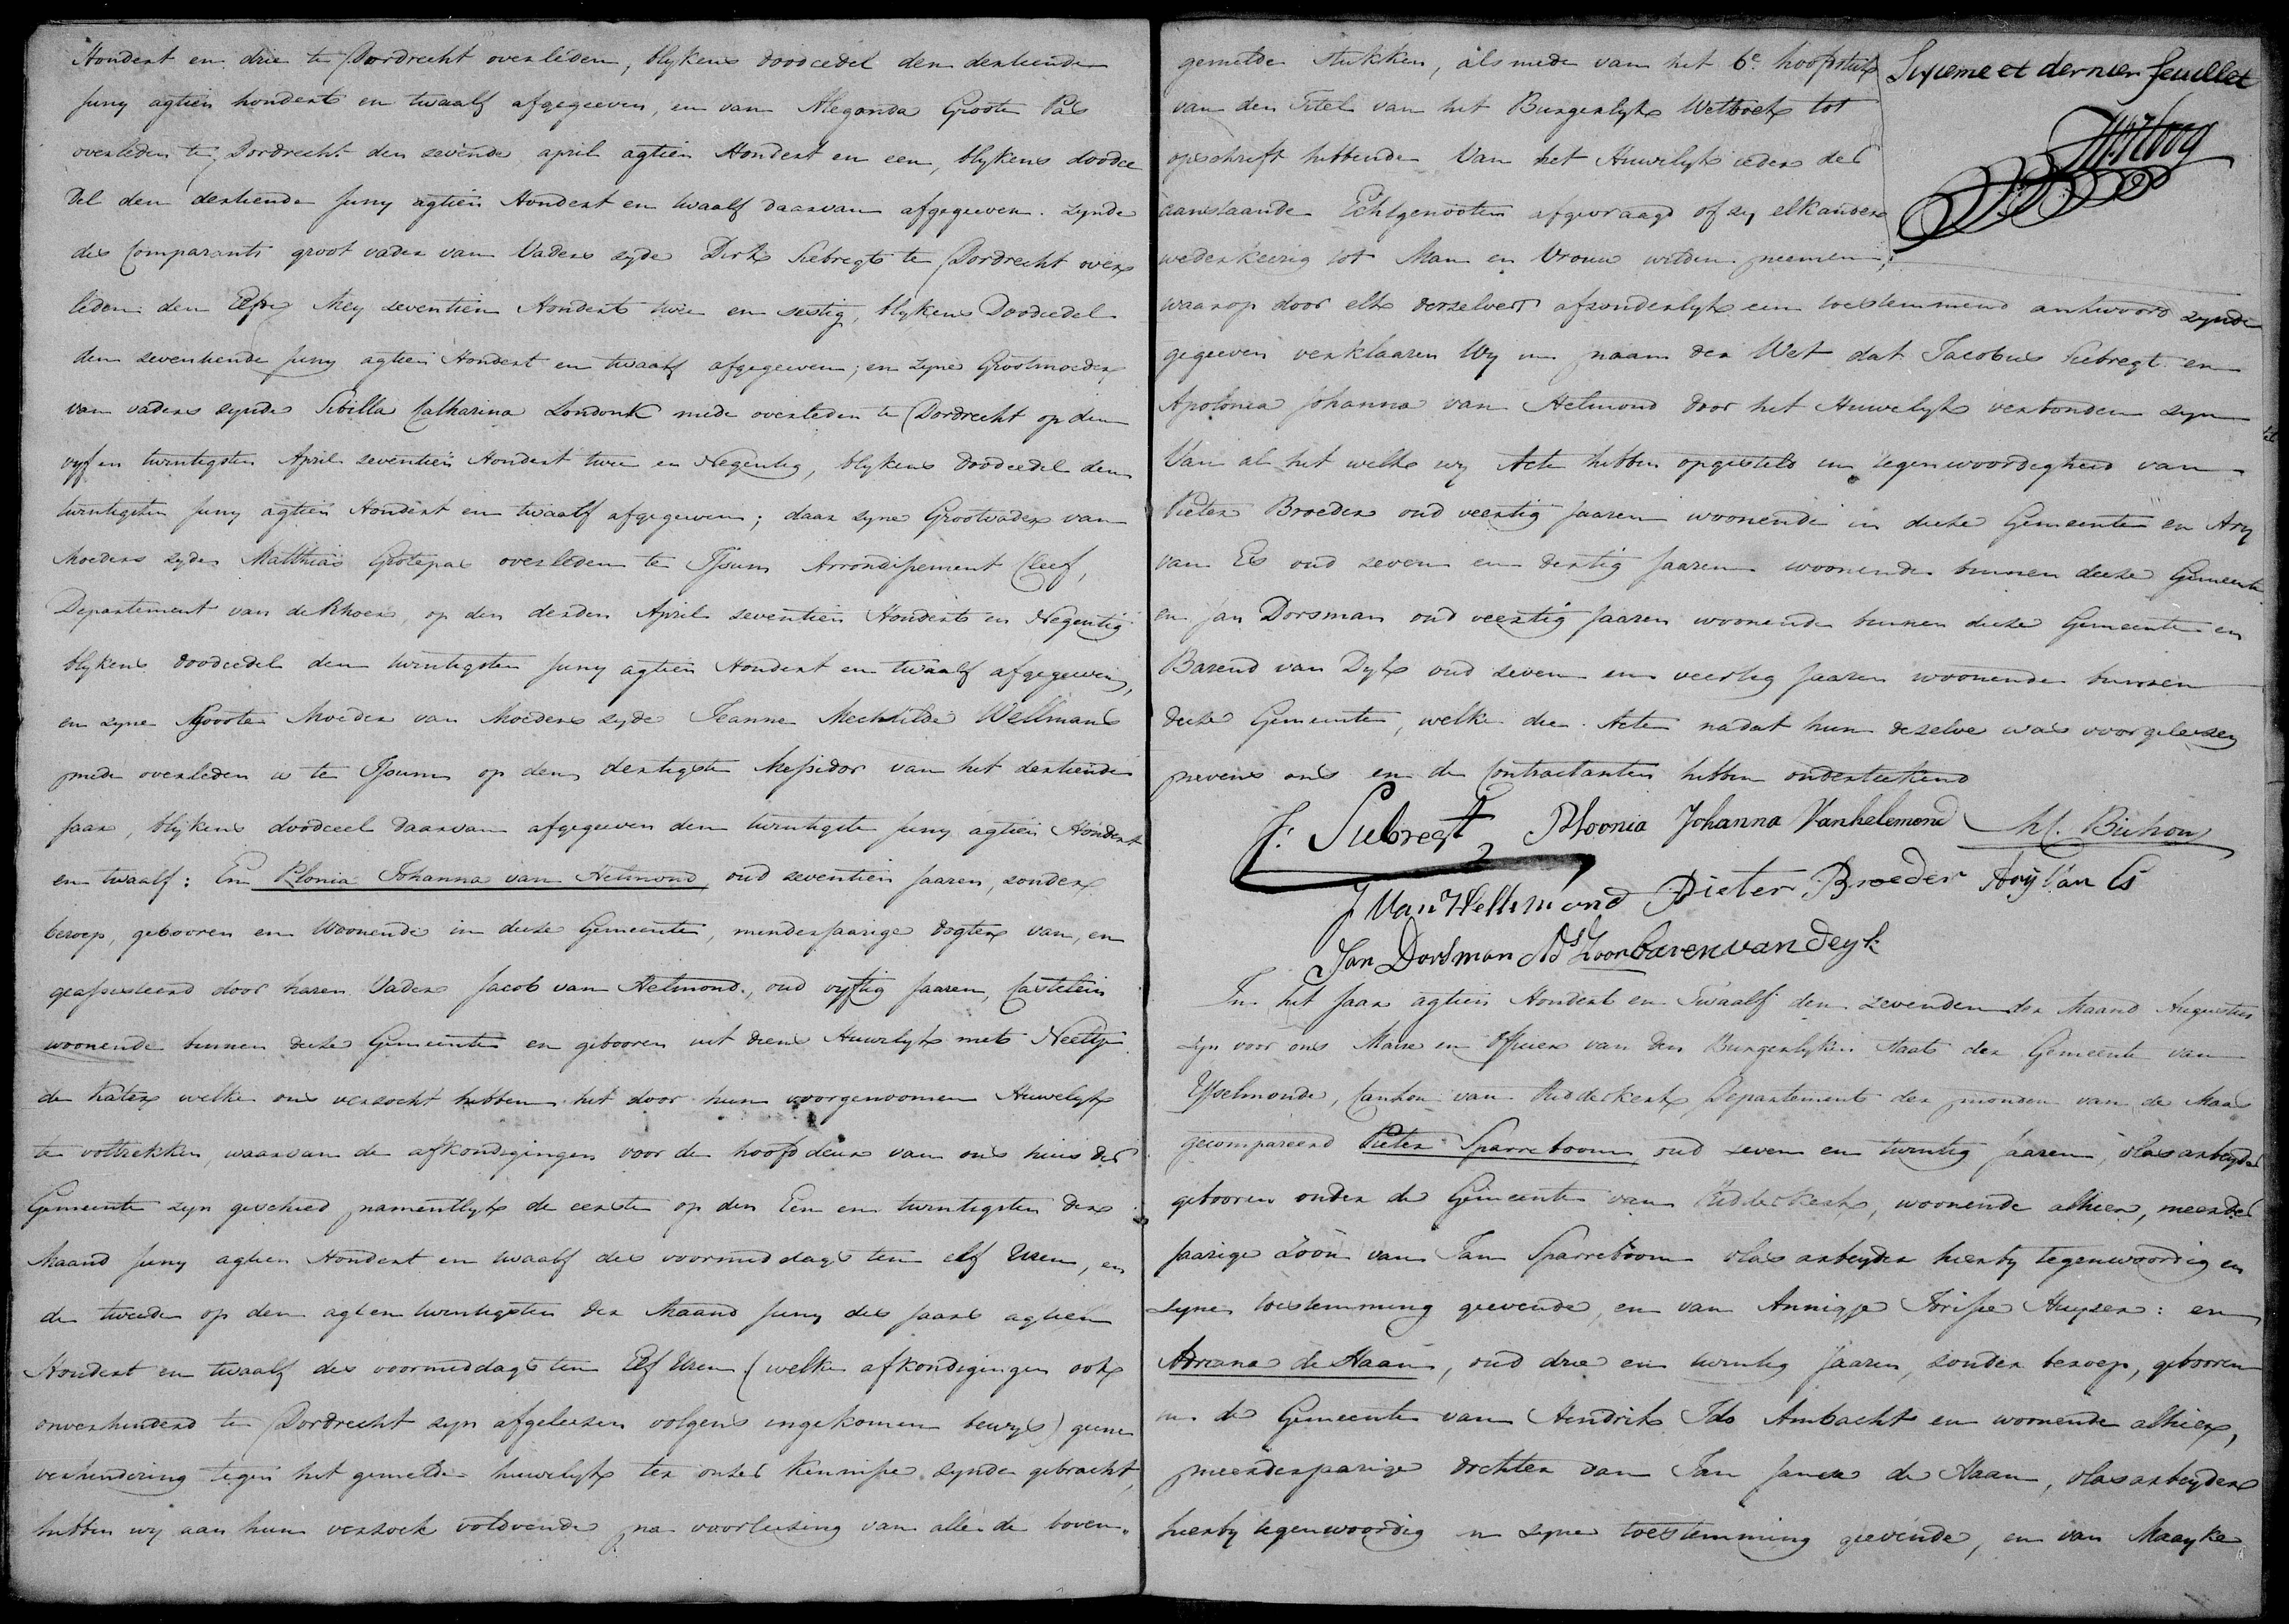 Hondert en drie te Dordrecht overleden, blykens doodcedel den dertiende
Juny agtien hondert en twaalf afgegeeven, en van Alegonda Groote Pas
overleden te Dordrecht den sevende april agtien Hondert en een, blykens doodce
del den dertiende Juny agtien Hondert en twaalf daarvan afgegeeven. zynde
des Comparants groot vader van Vaders zyde Dirk Siebregt te Dordrecht over
leden den Elfde Mey seventien Hondert twee en sestig, blykens Doodcedel
den zeventiende Juny agtien Hondert en twaalf afgegeeven; en zyne Grootmoeder
van vaders zynde Sibilla Catharina Londonk mede overleden te Dordrecht op den
vyf en twintigsten April seventien Hondert twee en Negentig, blykens Doodcedel den
twintigsten Juny agtien Hondert en twaalf afgegeeven; daar zyne Grootvader van
Moeders zyde Matthias Grotepas overleden te Issum Arrondissement Cleef,
Departement van de Rhoer, op den derden April seventien Hondert en Negentig
blykens doodcedel den twintigsten Juny agtien Hondert en twaalf afgegeeven,
en zyne Groote Moeder van Moeders zyde Jeanne Mechtilde Wellmans
mede overleden is te Issum op den dertigste Messidor van het dertiende
Jaar, blykens doodceel daarvan afgegeeven den twintigste Juny agtien Hondert
en twaalf: En Plonia Johanna van Helmond oud seventien Jaaren, zonder
beroep, gebooren en Woonende in deeze Gemeente, minderjaarige dogter van, en
geassisteerd door haren Vader Jacob van Helmond, oud vyftig Jaaren, Castelein
woonende binnen deeze Gemeente en gebooren uit diens Huwelyk met Neeltje
de Kater welke ons versocht hebben het door hun voorgenoomen Huwelyk
te voltrekken, waarvan de afkondigingen voor de hoofddeur van ons huis der
Gemeente zyn geschied namentlyk de eerste op den Een en twintigsten der
Maand Juny agtien Hondert en twaalf des voormiddags ten elf Uren, en
de tweede op den agt en twintigsten der Maand Juny des Jaars agtien
Hondert en twaalf des voormiddags ten Elf Uren (welke afkondigingen ook
onverhinderd te Dordrecht zyn afgeleesen volgens ingekomen bewys) geene
verhindering tegen het gemelde huwelyk ter onser kennisse zynde gebracht,
hebben wy aan hun versoek voldoende na voorleesing van alle de boven-
gemelde stukken, alsmede van het 6e hoofdstuk
van den Titel van het Burgerlyk Wetboek tot
opschrift hebbende Van het Huwelyk ieder der
aanstaande Echtgenooten afgevraagd of zy elkander
wederkeerig tot Man en Vrouw wilden neemen;
Sixieme et dernier feuillet
waarop door elk derzelver afzonderlyk een toestemmend antwoord zynde
gegeeven verklaaren Wy in naam der Wet dat Jacobus Siebregt en
Apolonia Johanna van Helmond door het Huwelyk verbonden zyn
Van al het welk wy Acte hebben opgesteld in tegenwoordigheid van
Pieter Broeder oud veertig Jaaren woonende in deeze Gemeente en Ary
van Es oud zeven en dertig Jaaren woonende binnen deeze Gemeente
en Jan Dorsman oud veertig Jaaren woonende binnen deeze Gemeente en
Barend van Dyk oud zeven en veertig Jaaren woonende binnen
deeze Gemeente, welke die Acte nadat hun dezelve was voorgeleesen
nevens ons en de Contractanten hebben onderteekend
J: Siebregt Ploonia Johanna Vanhelemond
J Van Hellemond Pieter Broeder Arij Van Es
Jan Dorsman Ads Zoon baren van deyk
In het Jaar agtien Hondert en Twaalf den zevenden der Maand Augustus
zyn voor ons Maire en Officier van den Burgerlyken Staat der Gemeente van
Ysselmonde, Canton van Ridderkerk Departement der monden van de Maas
gecompareerd Pieter Sparreboom oud zeven en twintig Jaaren, vlasarbeyder
gebooren onder de Gemeente van Ridderkerk, woonende alhier, meerder
jaarige zoon van Jan Sparreboom vlas arbeyder hierby tegenwoordig en
zyne toestemming geevende, en van Annigje Huyser: en
Adriana de Haan, oud drie en twintig Jaaren, zonder beroep, gebooren
in de Gemeente van Hendrik Ido Ambacht en woonende alhier,
meerderjaarige dochter van Jan Janse de Haan, vlasarbeyder
hierby tegenwoordig en zyne toestemming geevende, en van Maayke